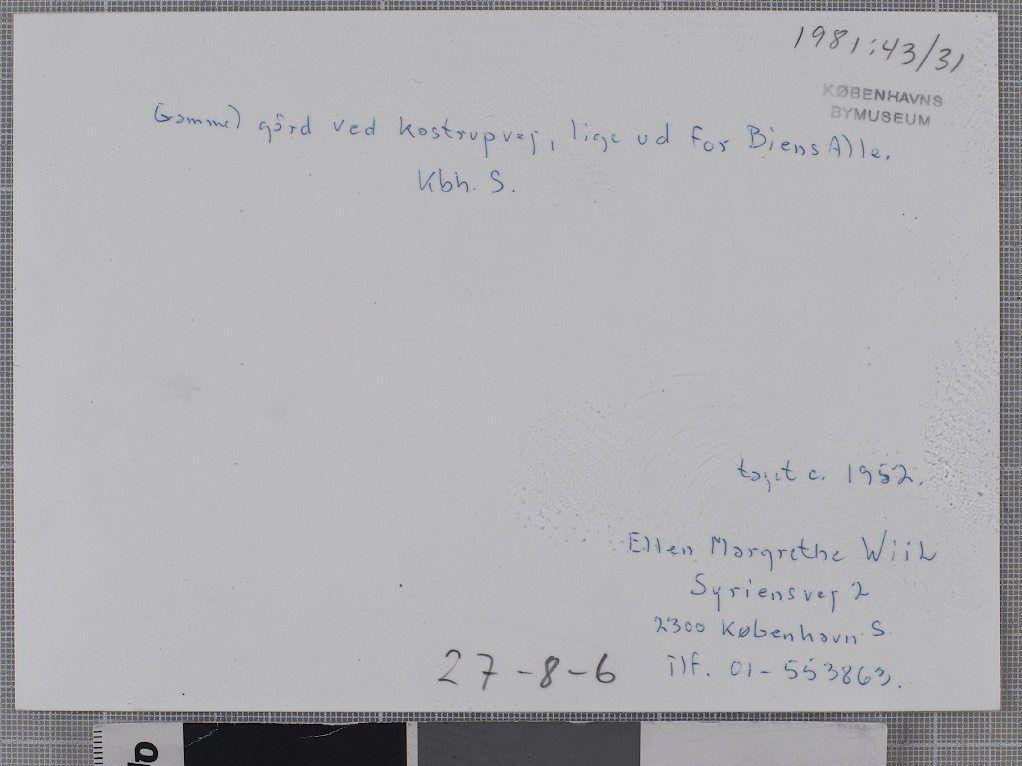 1981:43/31
KØBENHAVNS
BYMUSEUM
Gammel gård ved Kastrupvej, lige ud for Biens Alle.
Kbh. S.
taget c. 1952.
Ellen Margrethe Wiih
Syriensvej 2
2300 København S.
Tlf. 01-553863.
27-8-6